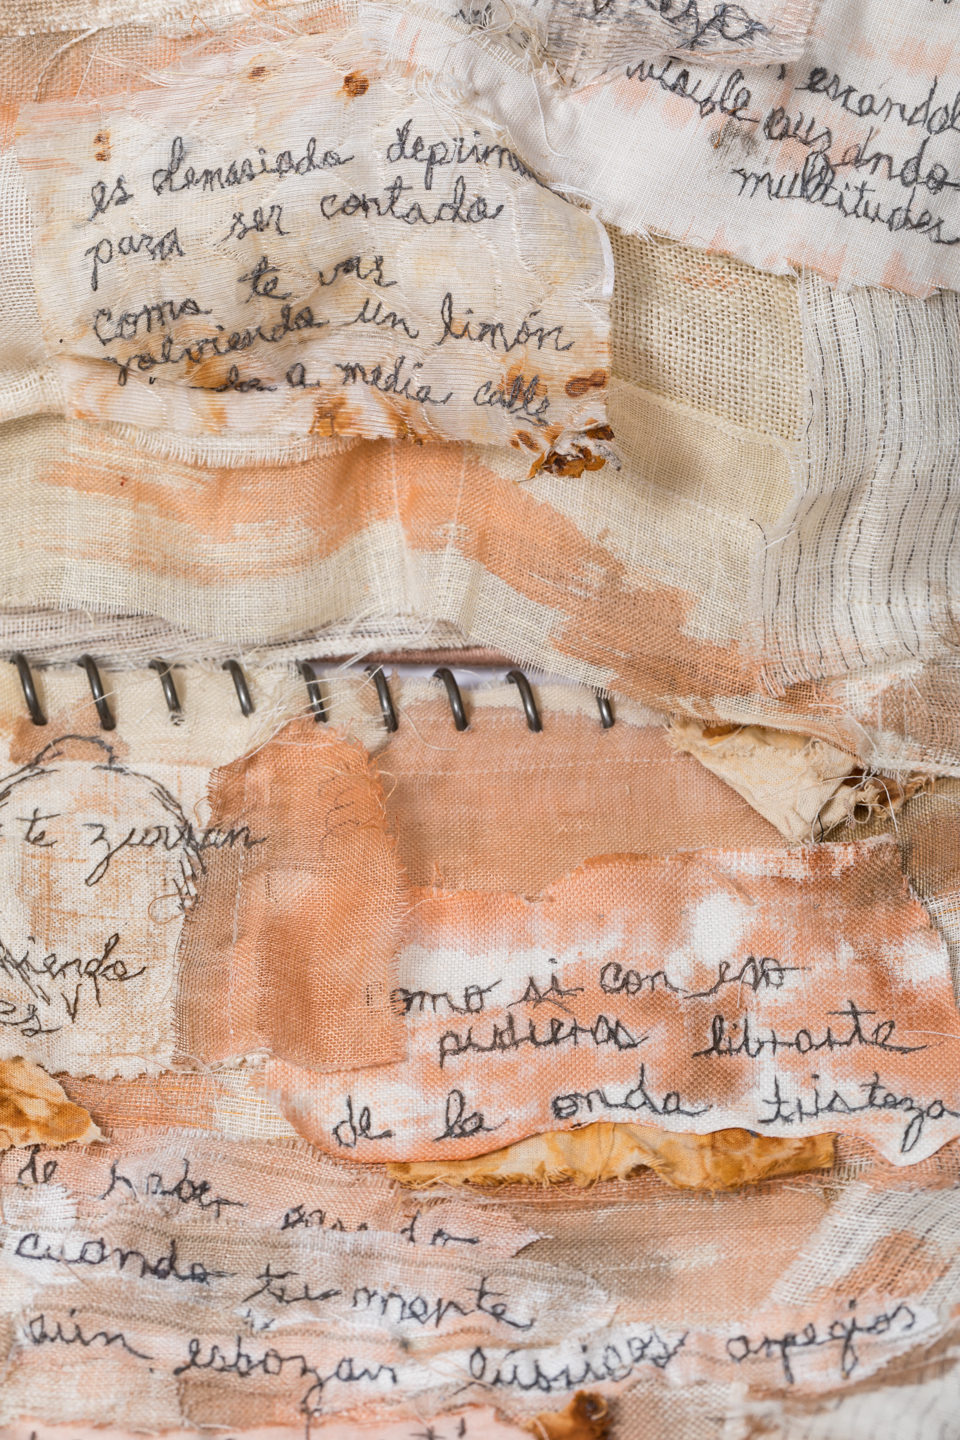 escándal
visible cruzando
multitudes
es demasiado deprim
para ser contado
como te vas
volviendo un limón
a media calle
te zurran
iendo
es
omo si con eso
pudieras librarte
de la onda tristeza
de haber
cuando tu mente
aún esbozan arpegios